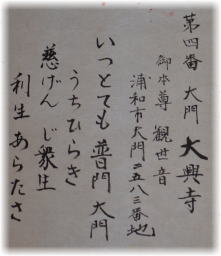 第四番 大門 大興寺
御本尊 観世音
浦和市大門二五八三番地
いつとても 普門大門
うちひらき
慈げん じ衆生
利生あらたさ